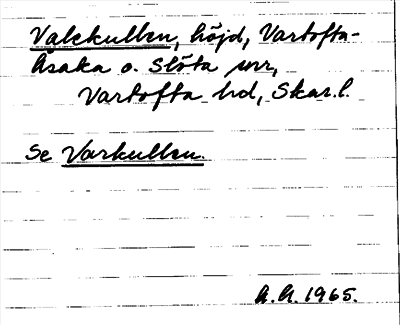 Valekullen, höjd, Vartofta-
Åsaka o. Slöta snr,
Vartofta hd, Skar.l.
Se Varkullen.
A.A. 1965.